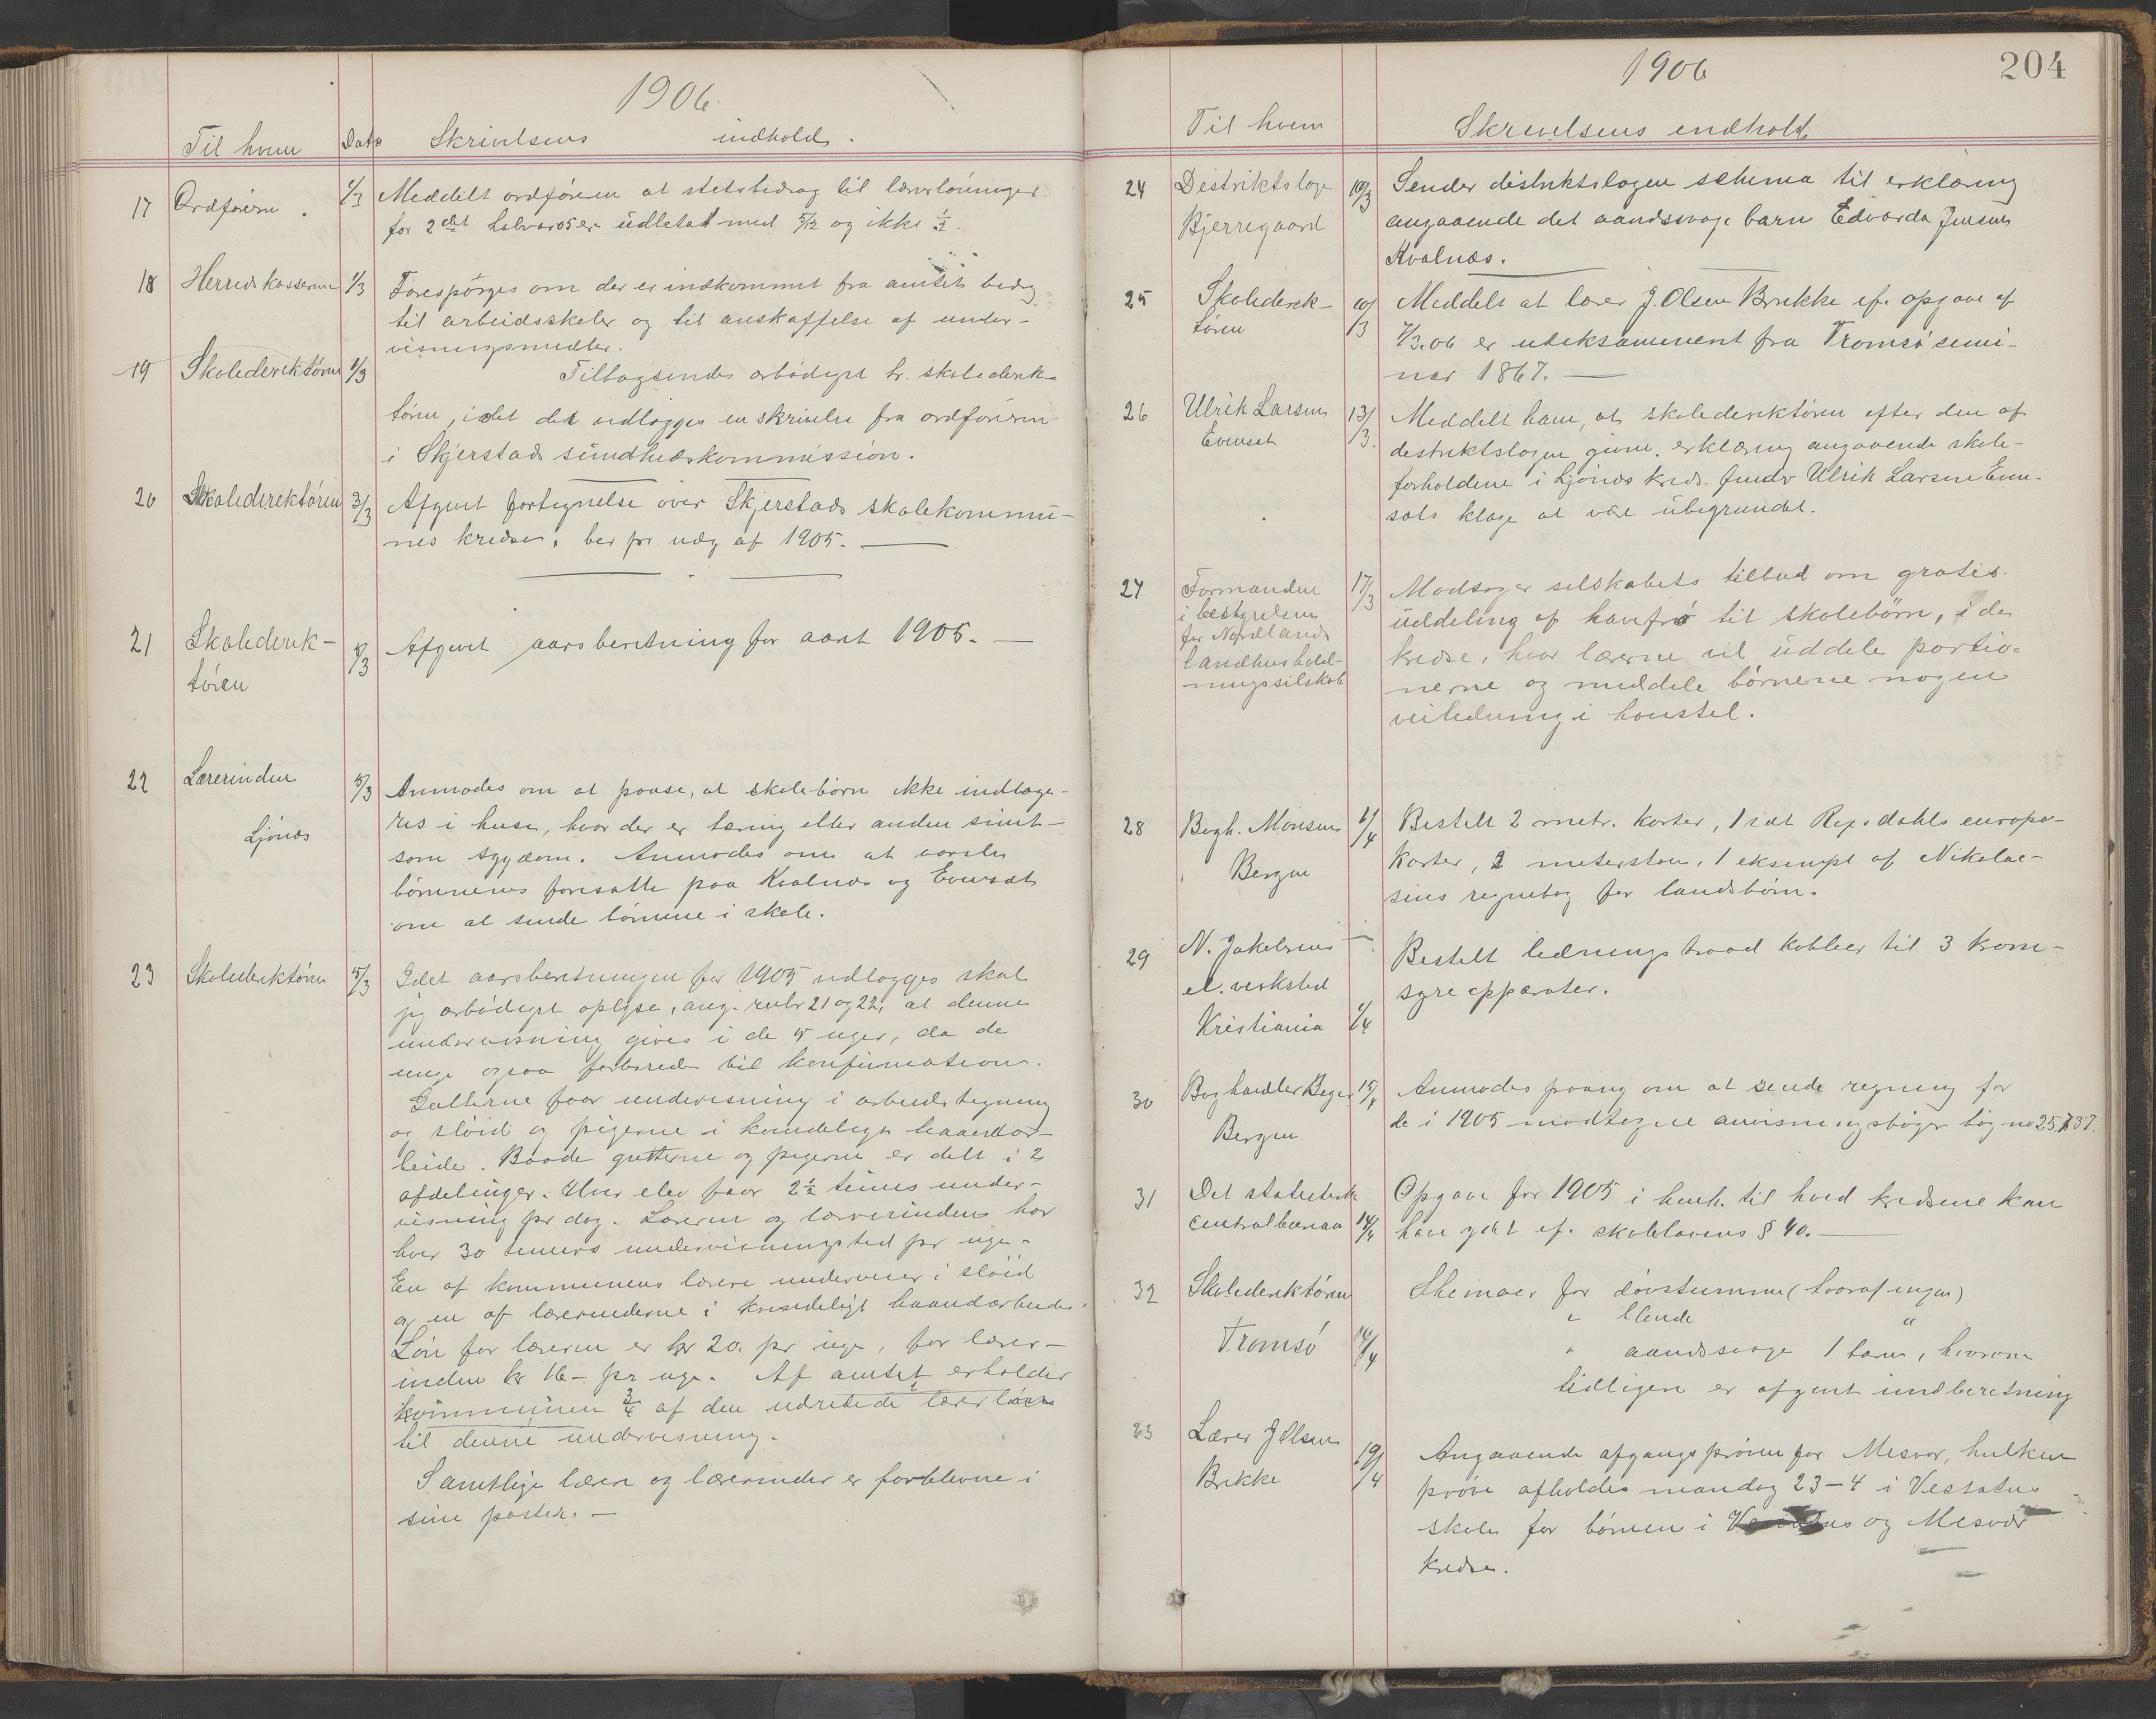 1906
Til hvem Dato Skrivelsens indhold.
17 Ordføreren. 1/3 Meddelt ordføreren at statsbidrag til lærerlønninger
for 2det halvaar 05 er udbetalt med 5/12 og ikke 1/2.
18 Herredskasseren 1/3 Forespørges om der er indkommet fra amtet bidrag
til arbeidsskoler og til anskaffelse af under-
visningsmidler.
19 Skoledirektøren 1/3
Tilbagesendes ærbødigst hr. skoledirek-
tøren, idet der vedlægges en skrivelse fra ordføreren
i Skjerstad sundhedskommission.
20 Skoledirektøren 3/3 Afgivet fortegnelse over Skjerstads skolekommu-
nes kredser, ber. pr. udg. af 1905.
21 Skoledirek-
tøren 5/3 Afgivet aarsberetning for aaret 1905.
22 Lærerinden
Ljönes 5/3 Anmodes om at paase, at skolebørn ikke indloge-
res i huse, hvor der er tæring eller anden smit-
som sygdom. Anmodes om at varsle
børnenes foresatte paa Kvalnes og Evensæt
om at sende børnene i skole.
23 Skoledirektøren 5/3 Idet aarsberetningen for 1905 vedlægges skal
jeg ærbødigst oplyse, ang. rubr 21 og 22, at denne
undervisning gives i de 5 uger, da de
unge ogsaa forberedes til konfirmation.
Gutterne faar undervisning i arbeidstegning
og sløid og pigerne i kvindeligt haandar-
beide. Baade gutterne og pigerne er delt i 2
afdelinger. Hver elev faar 2½ times under-
visning pr dag. Læreren og lærerinden har
hver 30 timers undervisningstid pr uge.
En af kommunens lærere underviser i sløid
og en af lærerinderne i kvindeligt haandarbeide.
Løn for læreren er kr 20. pr uge, for lærer-
inden kr 16- pr uge. Af amtet erholder
kommunen 3/4 af den udredede lærerløn
til denne undervisning.
Samtlige lærere og lærerinder er forblevne i
sine poster. —
1906 204
Til hvem Skrivelsens indhold
24 Distriktslæge
Bjerregaard 10/3 Sender distriktslægen schema til erklæring
angaaende det aandssvage barn Edvarda Jensen
Kvalnes.
25 Skoledirek-
tøren 10/3 Meddelt at lærer J. Olsen Brekke ef. opgave af
7/3.06 er udeksamineret fra Tromsø semi-
nar 1867. —
26 Ulrik Larsen
Evensæt 13/3. Meddelt ham, at skoledirektøren efter den af
distriktslægen givne erklæring angaaende skole-
forholdene i Ljönes kreds finder Ulrik Larsen Even-
sæts klage at være ubegrundet.
27 Formanden
i bestyrelsen
for Nordlands
landhushold-
ningsselskab 17/3 Modtager selskabets tilbud om gratis
uddeling af havefrø til skolebørn, i de
kredse, hvor lærerne vil uddele portio-
nerne og meddele børnene nogen
veiledning i havestel.
28 Bogh. Monsen
Bergen 6/4 Bestilt 2 metr. karter, 1 sæt Rejsdahls europa-
karter, 2 meterstave, 1 eksempl af Nikolai-
sens regnebog for landsbørn.
29 N. Jakobsens
el. verksted
Kristiania 6/4 Bestilt ledningstraad kobber til 3 krom-
syreapparater.
30 Boghandler Beyer
Bergen 15/4 Anmodes paany om at sende regning for
de i 1905 modtagne anvisningsbøger
31 Det statistisk
centralbureau 14/4 Opgave for 1905 i henh. til hvad kredsene kan
have ydet ef. skolelovens § 40. —
32 Skoledirektøren
Tromsø 14/4 Skemaer for døvstumme (hvoraf ingen)
" blinde "
" aandssvage 1 barn, hvorom
tidligere er afgivet indberetning
33 Lærer J Olsen
Brekke 19/4 Angaaende afgangsprøven for Misvær, hvilken
prøve afholdes mandag 23-4 i Vestvatns
skole for børnene i og Misvær
kredse.